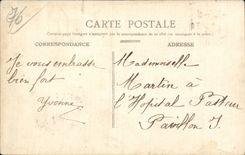 70
CARTE POSTALE
CORRESPONDANCE
ADRESSE
Je vous embrasse
bien fort
Yvonne
Mademoiselle
Martin à
l'Hopital Pasteur
Pavillon J.